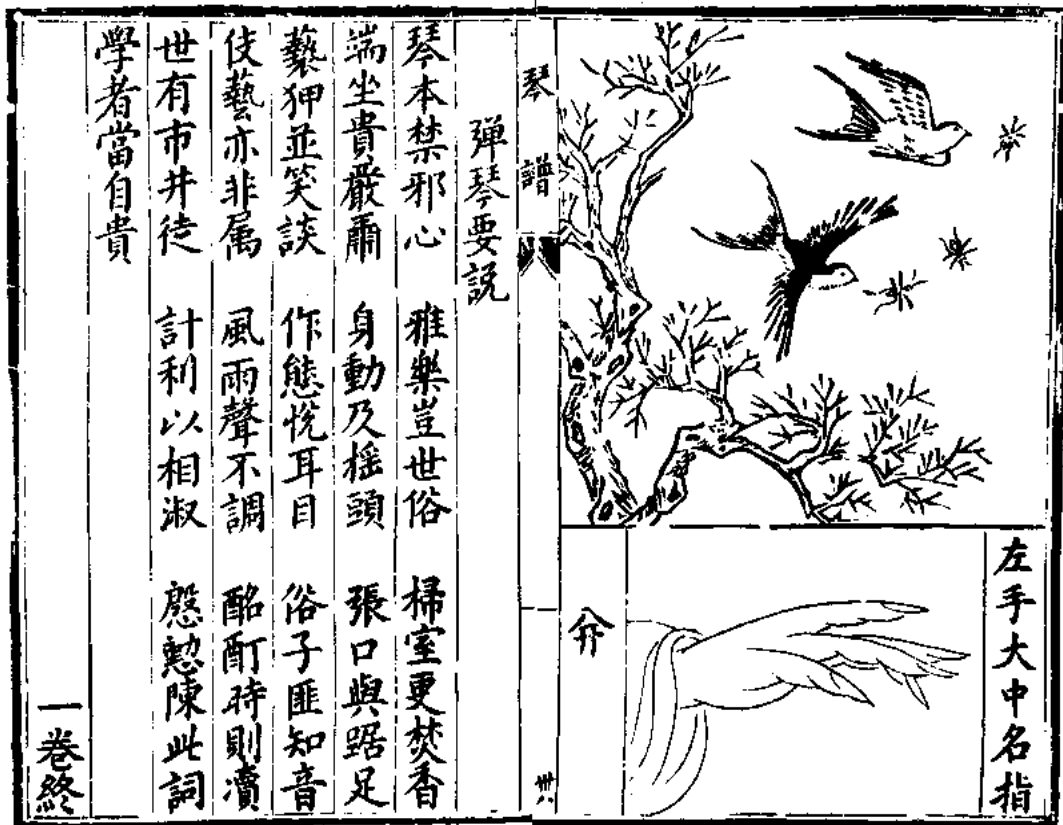 左手大中名指
琴譜
卅八
彈琴要說
琴本禁邪心 雅樂豈世俗 掃室更焚香
端坐貴嚴肅 身動及搖頭 張口與踞足
褻狎並笑談 作態悅耳目 俗子匪知音
伎藝亦非属 風雨聲不調 酩酊時則瀆
世有市井徒 計利以相淑 慇懃陳此詞
學者當自貴
一卷終